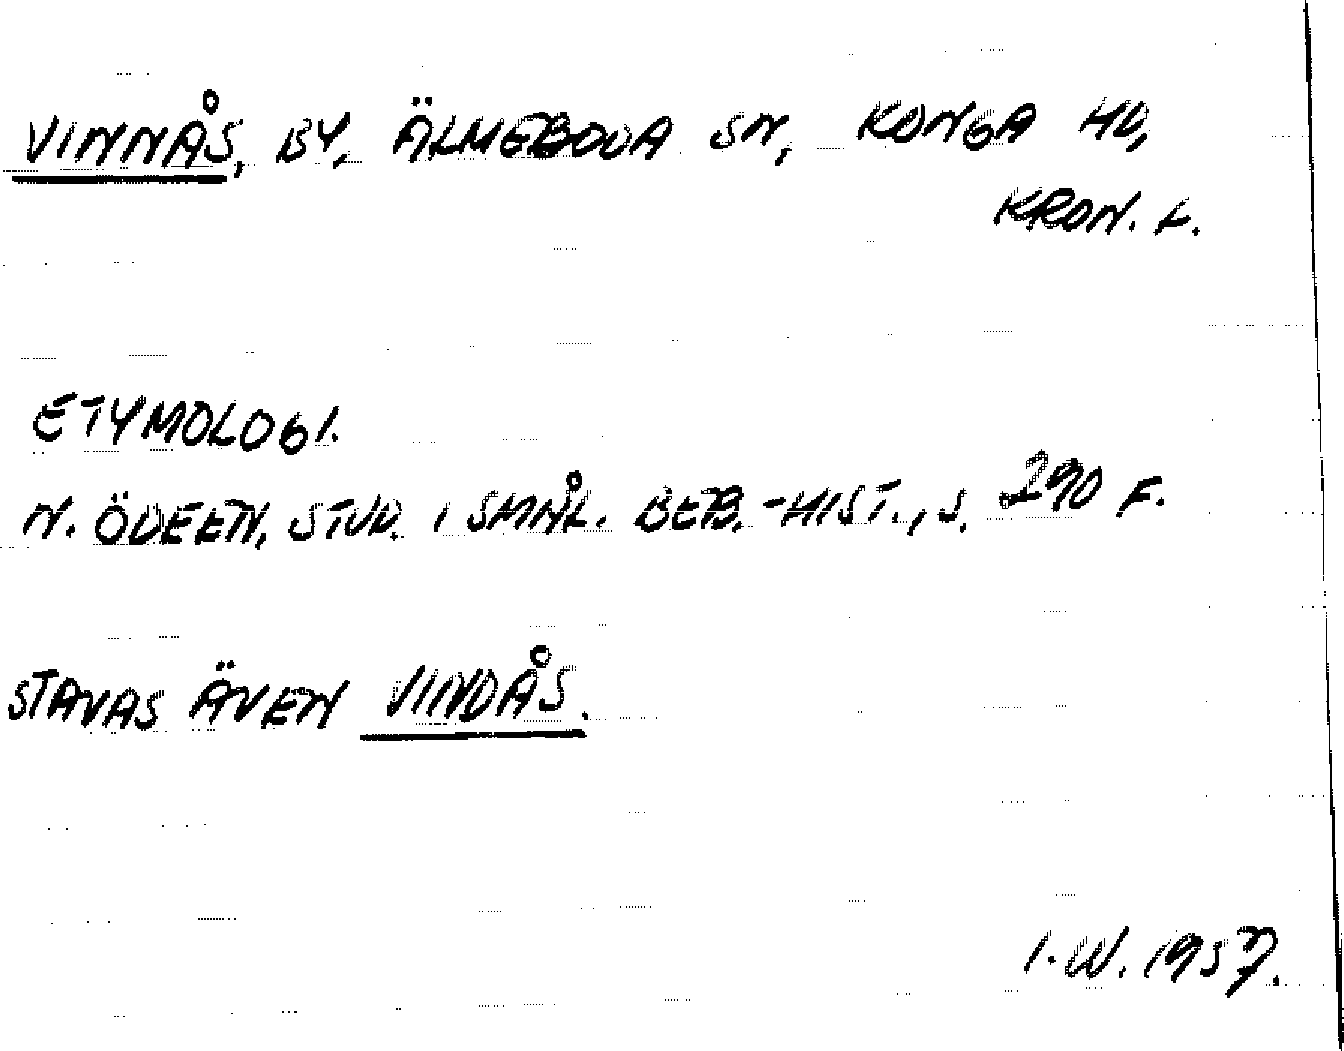 VINNÅS, BY, ÄLMEBODA SN, KONGA HD,
KRON. L.
ETYMOLOGI.
N. ÖDEEN, STUD. I SMÅL. BEB.-HIST., S. 290 F.
STAVAS ÄVEN VINDÅS.
I.W. 1957.